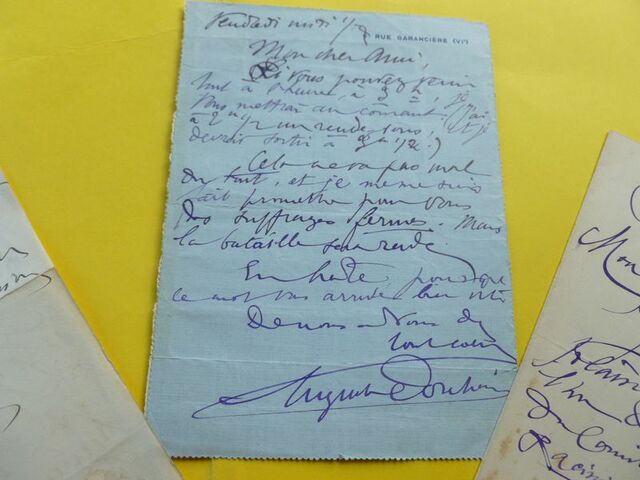 Vendredi midi 1/2
RUE GARANCIÈRE (VIe)
Mon cher Ami,
Si vous pouvez venir
tout à l'heure, à 2h, je
vous mettrai au courant. (J'ai
à 2h 1/2 un rendez-vous,
devoir sortir à 2h 1/2.)
Cela ne va pas mal
du tout, et je me suis
fait promettre pour vous
des suffrages fermes. Mais
la bataille sera rude.
En hâte, pour que
ce mot vous arrive bien vite
De vous à Vous de
tout cœur
Auguste Dorchain
Mon